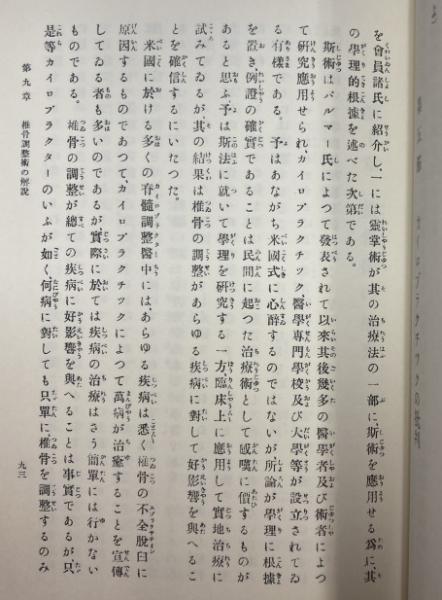 を會員諸氏に紹介し、一には靈掌術が其の治療法の一部に、斯術を應用せる爲に、其
の學理的根據を述べた次第である。
斯術はパルマー氏によつて發表されて以來其後幾多の醫學者及び術者によつ
て研究應用せられ、カイロプラクチック醫學專門學校及び大學等が設立されてゐ
る有樣である。予はあながち米國式に心醉するのではないが所論が學理に根據
を置き、例證の確實であることは民間に起つた治療術として感嘆に價するものが
あると思ふ。予は斯法に就いて學理を研究する一方、臨床上に應用して實地治療に
試みてゐるが其の結果は椎骨の調整があらゆる疾病に對して好影響を與へるこ
とを確信するにいたつた。
米國に於ける多くの脊髓調整醫中にはあらゆる疾病は悉く椎骨の不全脫臼に
原因するものであつて、カイロプラクチックによつて萬病が治癒することを宣傳
してゐる者も多いのであるが、實際に於ては疾病の治療はさう簡單には行かない
ものである。椎骨の調整が總ての疾病に好影響を與へることは事實であるが、只、
是等カイロプラクターのいふが如く、何病に對しても只單に、椎骨を調整するのみ
第九章　椎骨調整術の解說
九三